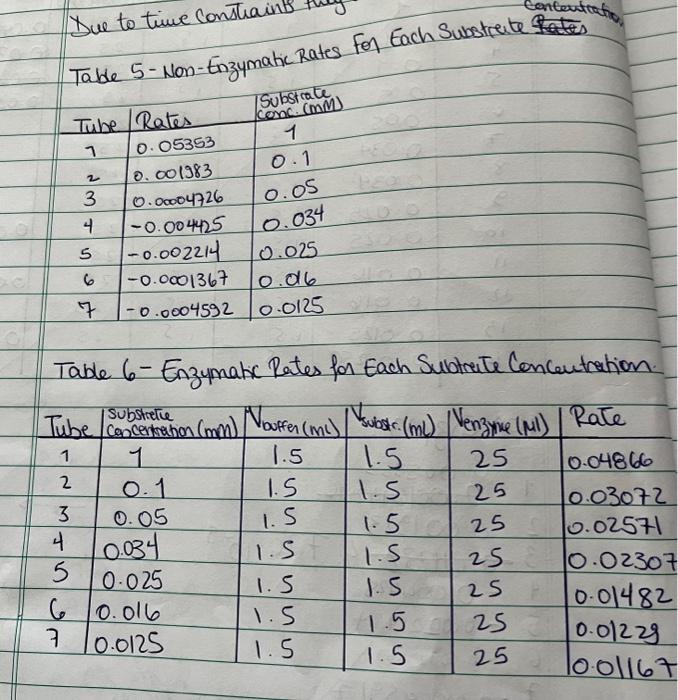 Due to time Constraints
Concentration
Table 5 - Non-Enzymatic Rates For Each Substrate Rates
Tube | Rates | Substrate Conc. (mM)
1 | 0.05353 | 1
2 | 0.001983 | 0.1
3 | 0.00004726 | 0.05
4 | -0.004425 | 0.034
5 | -0.002214 | 0.025
6 | -0.0001367 | 0.016
7 | -0.0004592 | 0.0125
Table 6 - Enzymatic Rates for Each Subtrate Concentration.
Tube | Substrate Concentration (mM) | Vbuffer (mL) | Vsubstr. (mL) | Venzyme (µl) | Rate
1 | 1 | 1.5 | 1.5 | 25 | 0.04866
2 | 0.1 | 1.5 | 1.5 | 25 | 0.03072
3 | 0.05 | 1.5 | 1.5 | 25 | 0.02571
4 | 0.034 | 1.5 | 1.5 | 25 | 0.02307
5 | 0.025 | 1.5 | 1.5 | 25 | 0.01482
6 | 0.016 | 1.5 | 1.5 | 25 | 0.01229
7 | 0.0125 | 1.5 | 1.5 | 25 | 0.01167